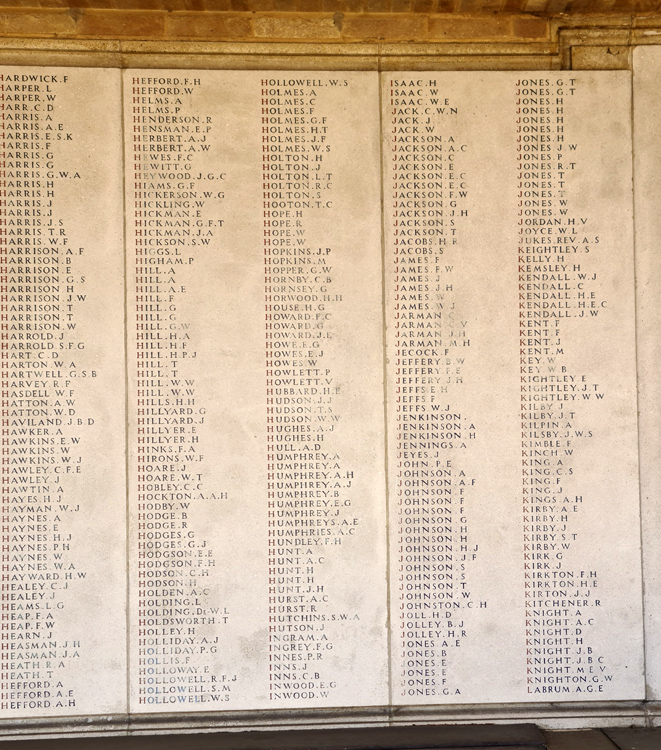 HARDWICK.F
HARPER.L
HARPER.W
HARR.C.D
HARRIS.A
HARRIS.A.E
HARRIS.E.S.K
HARRIS.F
HARRIS.G
HARRIS.G
HARRIS.G.W.A
HARRIS.H
HARRIS.H
HARRIS.J
HARRIS.J
HARRIS.J.S
HARRIS.T.R
HARRIS.W.F
HARRISON.A.F
HARRISON.B
HARRISON.E
HARRISON.G.S
HARRISON.H
HARRISON.J.W
HARRISON.T
HARRISON.T
HARRISON.W
HARROLD.J
HARROLD.S.F.G
HART.C.D
HARTON.W.A
HARTWELL.G.S.B
HARVEY.R.F
HASDELL.W.F
HATTON.A.W
HATTON.W.D
HAVILAND.J.B.D
HAWKER.A
HAWKINS.E.W
HAWKINS.W
HAWKINS.W.J
HAWLEY.C.F.E
HAWLEY.J
HAWTIN.A
HAYES.H.J
HAYMAN.W.J
HAYNES.A
HAYNES.E
HAYNES.H.J
HAYNES.P.H
HAYNES.W
HAYNES.W.A
HAYWARD.H.W
HEALEY.C.J
HEALEY.J
HEAMS.L.G
HEAP.F.A
HEAP.F.W
HEARN.J
HEASMAN.J.H
HEASMAN.J.A
HEATH.R.A
HEATH.T
HEFFORD.A
HEFFORD.A.E
HEFFORD.A.H
HEFFORD.F.H
HEFFORD.W
HELMS.A
HELMS.P
HENDERSON.R
HENSMAN.E.P
HERBERT.A.J
HERBERT.A.W
HEWES.F.C
HEWITT.G
HEYWOOD.J.G.C
HIAMS.G.F
HICKERSON.W.G
HICKLING.W
HICKMAN.E
HICKMAN.G.F.T
HICKMAN.J.A
HICKSON.S.W
HIGGS.L
HIGHAM.P
HILL.A
HILL.A
HILL.A.E
HILL.F
HILL.G
HILL.G.W
HILL.H.A
HILL.H.F
HILL.H.P.J
HILL.T
HILL.T
HILL.W.W
HILL.W.W
HILLS.H.H
HILLYARD.G
HILLYARD.J
HILLYER.E
HILLYER.H
HINKS.F.A
HIRONS.W.F
HOARE.J
HOARE.W.T
HOBLEY.C.C
HOCKTON.A.A.H
HODBY.W
HODGE.B
HODGE.R
HODGES.G
HODGES.G.J
HODGSON.E.E
HODGSON.F.H
HODSON.C.H
HODSON.H
HOLDEN.A.C
HOLDING.L
HOLDING.De W.L
HOLDSWORTH.T
HOLLEY.H
HOLLIDAY.A.J
HOLLIDAY.P.G
HOLLIS.F
HOLLOWAY.E
HOLLOWELL.R.F.J
HOLLOWELL.S.M
HOLLOWELL.W.S
HOLLOWELL.W.S
HOLMES.A
HOLMES.C
HOLMES.F
HOLMES.G.F
HOLMES.H.T
HOLMES.J.F
HOLMES.W.S
HOLTON.H
HOLTON.J
HOLTON.L.T
HOLTON.R.C
HOLTON.S
HOOTON.T.C
HOPE.H
HOPE.R
HOPE.W
HOPE.W
HOPKINS.J.P
HOPKINS.M
HOPPER.G.W
HORNBY.C.B
HORNSEY.G
HORWOOD.H.H
HOUSE.H.G
HOWARD.F.C
HOWARD.G
HOWARD.J.L
HOWE.E.G
HOWES.E.J
HOWES.W
HOWLETT.P
HOWLETT.V
HUBBARD.H.E
HUDSON.J.J
HUDSON.T.S
HUDSON.W.W
HUGHES.A.J
HUGHES.H
HULL.A.D
HUMPHREY.A
HUMPHREY.A
HUMPHREY.A.H
HUMPHREY.A.J
HUMPHREY.B
HUMPHREY.E.G
HUMPHREY.J
HUMPHREYS.A.E
HUMPHRIES.A.C
HUNDLEY.F.H
HUNT.A
HUNT.A.C
HUNT.H
HUNT.H
HUNT.J.H
HURST.A.C
HURST.R
HUTCHINS.S.W.A
HUTSON.J
INGRAM.A
INGREY.F.G
INNES.P.R
INNS.J
INNS.C.B
INWOOD.E.G
INWOOD.W
ISAAC.H
ISAAC.W
ISAAC.W.E
JACK.C.W.N
JACK.J
JACK.W
JACKSON.A
JACKSON.A.C
JACKSON.C
JACKSON.E
JACKSON.E.C
JACKSON.E.C
JACKSON.F.W
JACKSON.G
JACKSON.J.H
JACKSON.S
JACKSON.T
JACOBS.H.R
JACOBS.S
JAMES.F
JAMES.F.W
JAMES.J
JAMES.J.H
JAMES.W
JAMES.W.J
JARMAN.C
JARMAN.C.V
JARMAN.J.H
JARMAN.M.H
JECOCK.F
JEFFERY.B.W
JEFFERY.F.E
JEFFERY.J.H
JEFFS.E.H
JEFFS.F
JEFFS.W.J
JENKINSON.
JENKINSON.A
JENKINSON.H
JENNINGS.A
JEYES.J
JOHN.P.E
JOHNSON.A
JOHNSON.A.F
JOHNSON.F
JOHNSON.F
JOHNSON.F
JOHNSON.G
JOHNSON.H
JOHNSON.H
JOHNSON.H.J
JOHNSON.J.F
JOHNSON.S
JOHNSON.S
JOHNSON.T
JOHNSON.W
JOHNSTON.C.H
JOLL.H.D
JOLLEY.B.J
JOLLEY.H.R
JONES.A.E
JONES.B
JONES.E
JONES.E
JONES.F
JONES.G.A
JONES.G.T
JONES.G.T
JONES.H
JONES.H
JONES.H
JONES.H
JONES.H
JONES.J.W
JONES.P
JONES.R.T
JONES.T
JONES.T
JONES.T
JONES.W
JONES.W
JORDAN.H.V
JOYCE.W.L
JUKES.REV.A.S
KEIGHTLEY.S
KELLY.H
KEMSLEY.H
KENDALL.W.J
KENDALL.C
KENDALL.H.E
KENDALL.H.E.C
KENDALL.J.W
KENT.F
KENT.F
KENT.J
KENT.M
KEY.W
KEY.W.B
KIGHTLEY.E
KIGHTLEY.J.T
KIGHTLEY.W.W
KILBY.J
KILBY.J.T
KILPIN.A
KILSBY.J.W.S
KIMBLE.F
KINCH.W
KING.A
KING.C.S
KING.F
KING.J
KINGS.A.H
KIRBY.A.E
KIRBY.H
KIRBY.J
KIRBY.S.T
KIRBY.W
KIRK.G
KIRK.J
KIRKTON.F.H
KIRKTON.H.E
KIRTON.J.J
KITCHENER.R
KNIGHT.A
KNIGHT.A.C
KNIGHT.D
KNIGHT.H
KNIGHT.J.B
KNIGHT.J.B.C
KNIGHT.M.E.V
KNIGHTON.G.W
LABRUM.A.G.E